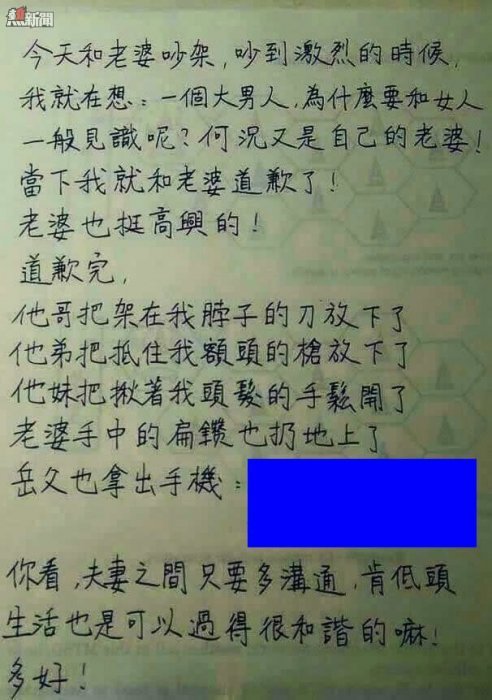 熱新聞
今天和老婆吵架，吵到激烈的時候，
我就在想：一個大男人，為什麼要和女人
一般見識呢？何況又是自己的老婆！
當下我就和老婆道歉了！
老婆也挺高興的！
道歉完，
他哥把架在我脖子的刀放下了
他弟把抵住我額頭的槍放下了
他妹把揪著我頭髮的手鬆開了
老婆手中的扁鑽也扔地上了
岳父也拿出手機：
你看，夫妻之間只要多溝通，肯低頭
生活也是可以過得很和諧的嘛！
多好！